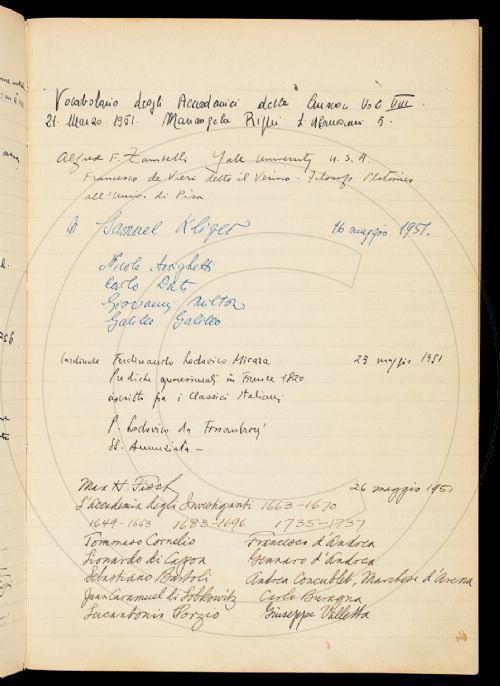 Vocabolario degli Accademici della Crusca Vol VIII.
21. Marzo. 1951. Mariangela Righi
Alfred F. Zambelli Yale University U.S.A.
Francesco de Vieri detto il Verino - Filosofo Platonico
all'Univ. di Pisa
Samuel Kliger 16 maggio 1951.
Nicolo Araghetti
Carlo Dati
Giovanni Milton
Galileo Galilei
Cardinale Ferdinando Lodovico Micara 23 maggio 1951
Prediche quaresimali in Firenze 1820
ascritto fra i classici italiani
P. Lodovico da
SS. Annunziata -
Max H. Fisch 26 maggio 1951
L'Accademia degli Investiganti 1663-1670
1649-1663 1683-1696 1735-1737
Tommaso Cornelio Francesco d'Andrea
Lionardo di Capoa Gennaro d'Andrea
Sebastiano Bartoli Andrea Concublet, Marchese d'Arena
Juan Caramuel di Lobkowitz Carlo Buragna
Lucantonio Porzio Giuseppe Valletta